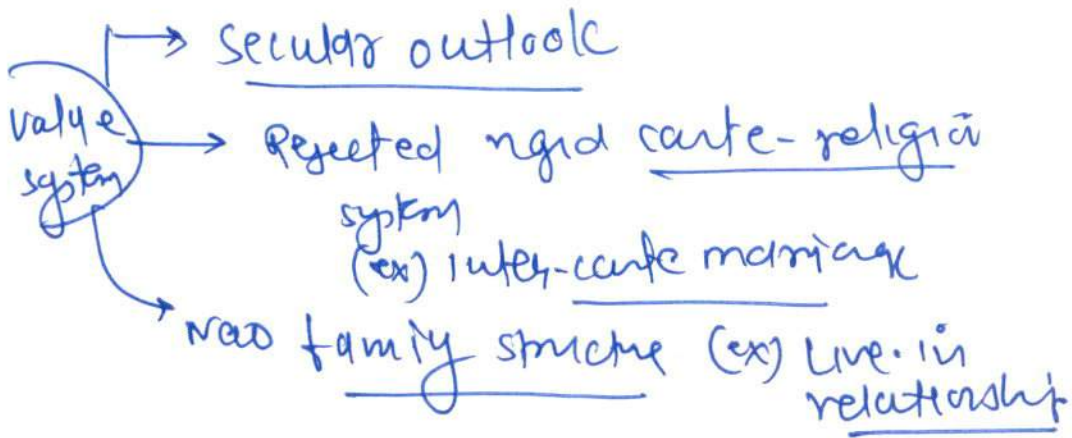 value
system
Secular outlook
Rejected rigid caste-religiō
system
(ex) inter-caste marriage
New family structure (ex) Live-in
relationship